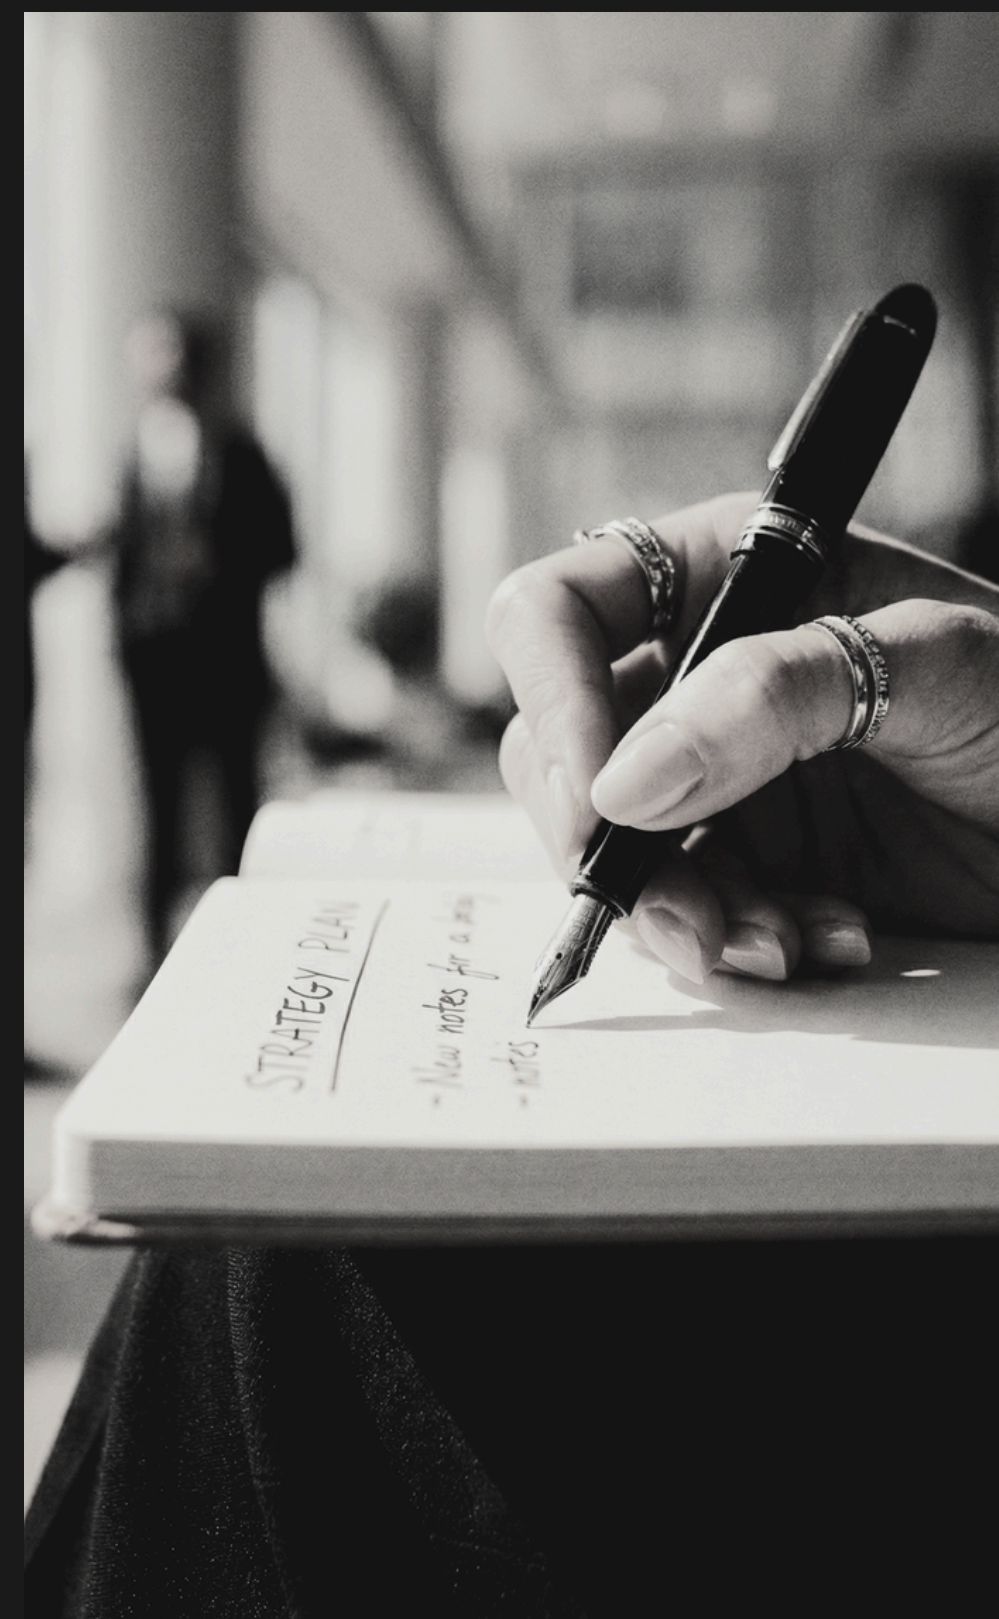 STRATEGY PLAN
- New notes for a
- notes